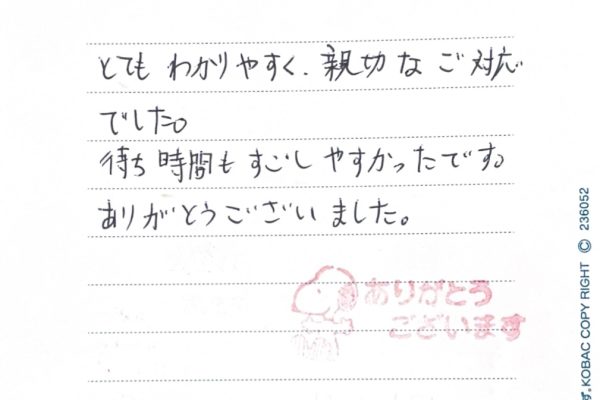 とても わかりやすく、親切な ご対応
でした。
待ち時間も すごし やすかったです。
ありがとうございました。
ありがとう
ございます
す。KOBAC COPY RIGHT © 236052